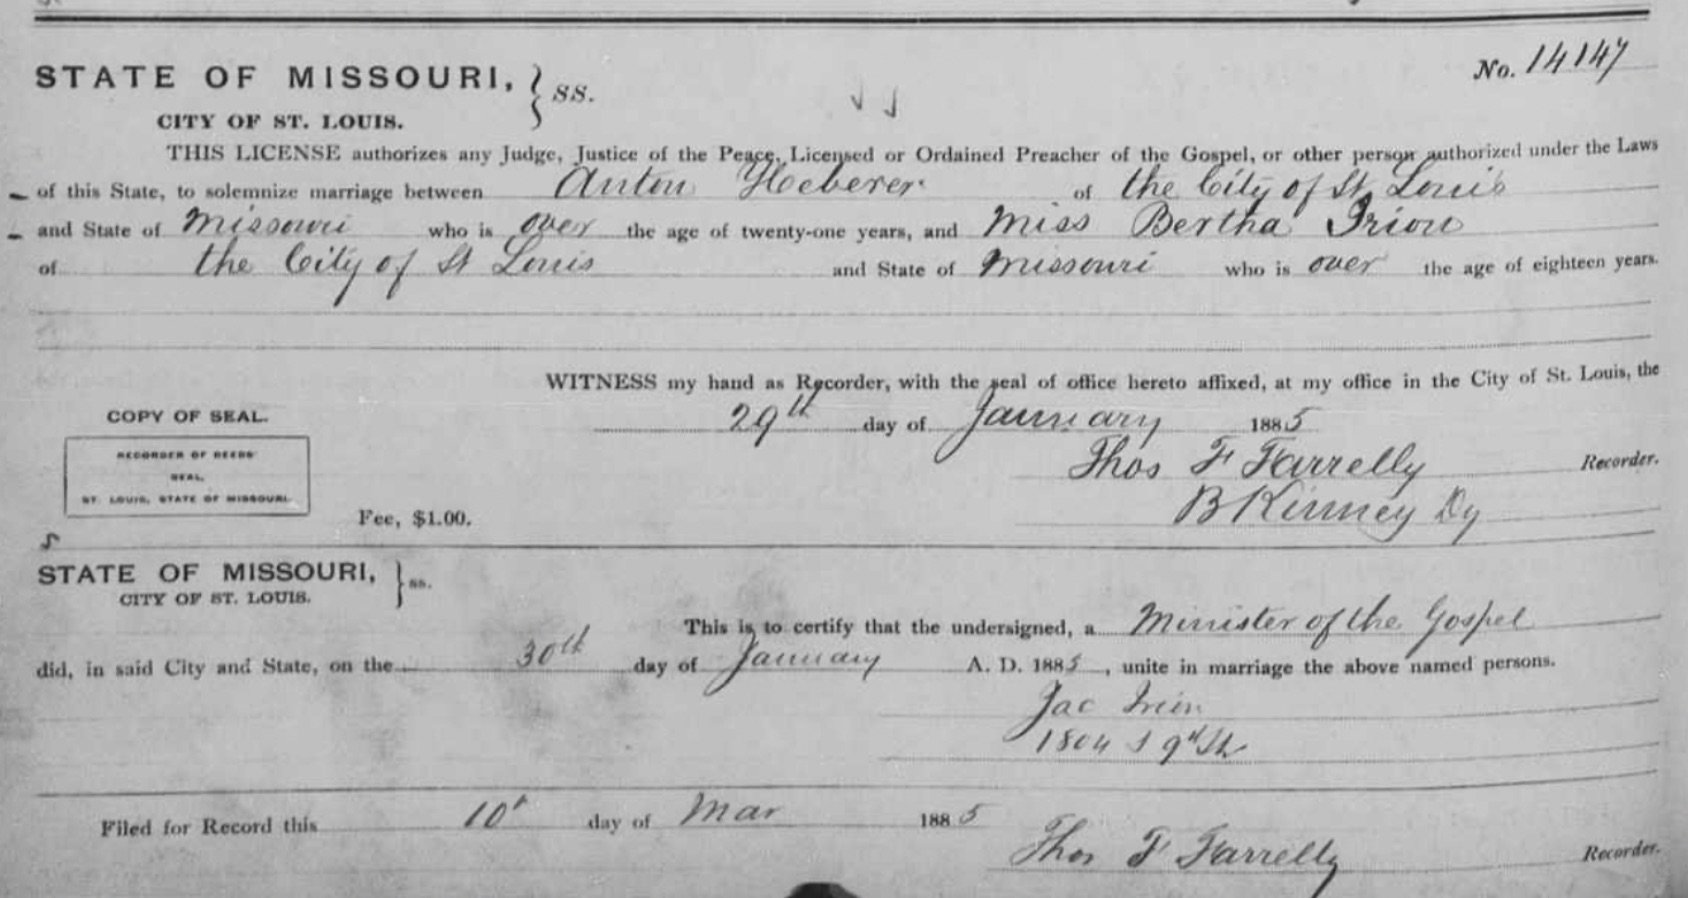 No. 14147
STATE OF MISSOURI, } ss.
CITY OF ST. LOUIS.
THIS LICENSE authorizes any Judge, Justice of the Peace, Licensed or Ordained Preacher of the Gospel, or other person authorized under the Laws
of this State, to solemnize marriage between Anton Hoeberer of the City of St Louis
and State of Missouri who is over the age of twenty-one years, and Miss Bertha Irion
of the City of St Louis and State of Missouri who is over the age of eighteen years.
WITNESS my hand as Recorder, with the seal of office hereto affixed, at my office in the City of St. Louis, the
29th day of January 1885
COPY OF SEAL.
RECORDER OF DEEDS
SEAL,
ST. LOUIS, STATE OF MISSOURI.
Thos F Farrelly Recorder.
B Kinney Dy
Fee, $1.00.
STATE OF MISSOURI, } ss.
CITY OF ST. LOUIS.
This is to certify that the undersigned, a Minister of the Gospel
did, in said City and State, on the 30th day of January A. D. 1885, unite in marriage the above named persons.
Jac Irion
1804 S 9th St
Filed for Record this 10" day of Mar 1885
Thos F Farrelly Recorder.